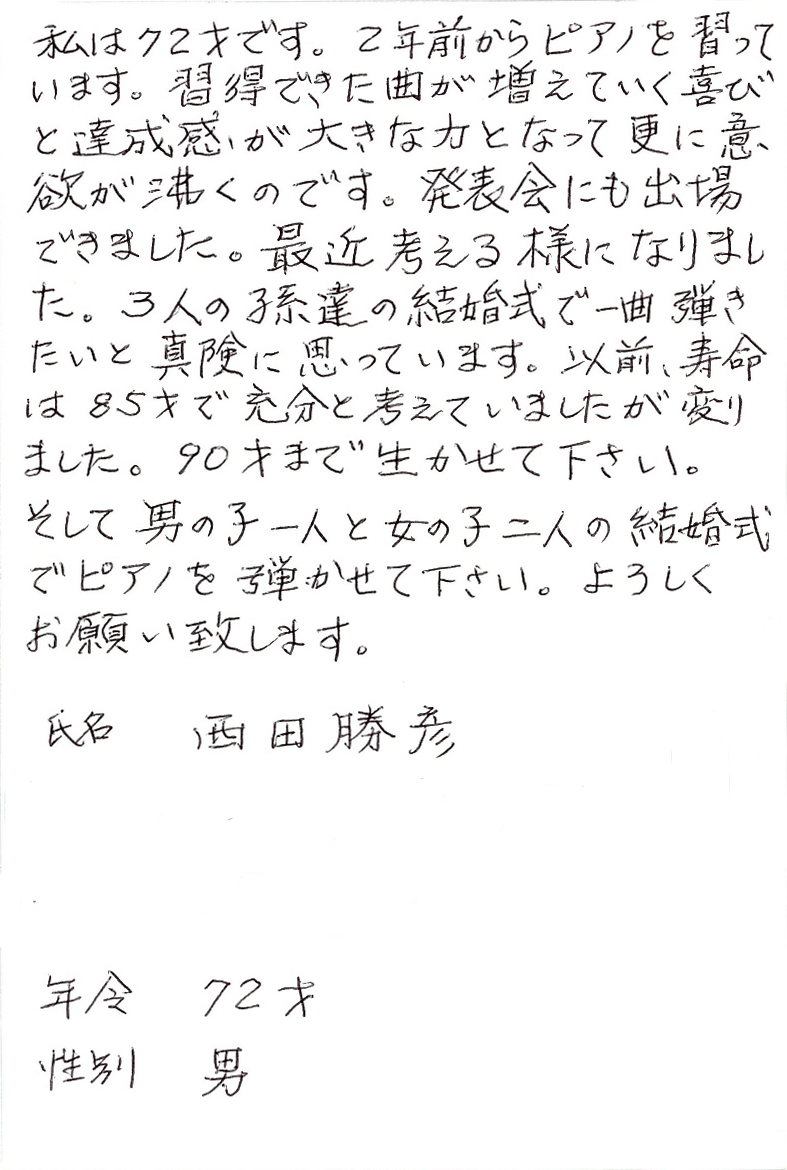 私は72才です。2年前からピアノを習って
います。習得できた曲が増えていく喜び
と達成感が大きな力となって更に意
欲が沸くのです。発表会にも出場
できました。最近考える様になりまし
た。3人の孫達の結婚式で一曲弾き
たいと真険に思っています。以前、寿命
は85才で充分と考えていましたが変り
ました。90才まで生かせて下さい。
そして男の子一人と女の子二人の結婚式
でピアノを弾かせて下さい。よろしく
お願い致します。
氏名 西田勝彦
年令 72才
性別 男